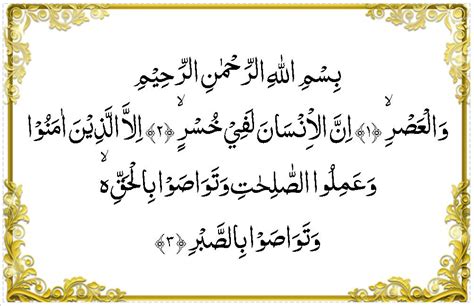 بِسْمِ اللهِ الرَّحْمٰنِ الرَّحِيْمِ
وَالْعَصْرِۙ ﴿١﴾ اِنَّ الْاِنْسَانَ لَفِيْ خُسْرٍۙ ﴿٢﴾ اِلاَّ الَّذِيْنَ اٰمَنُوْا
وَعَمِلُوا الصّٰلِحٰتِ وَتَوَاصَوْا بِالْحَقِّ ەۙ
وَتَوَاصَوْا بِالصَّبْرِ ﴿٣﴾